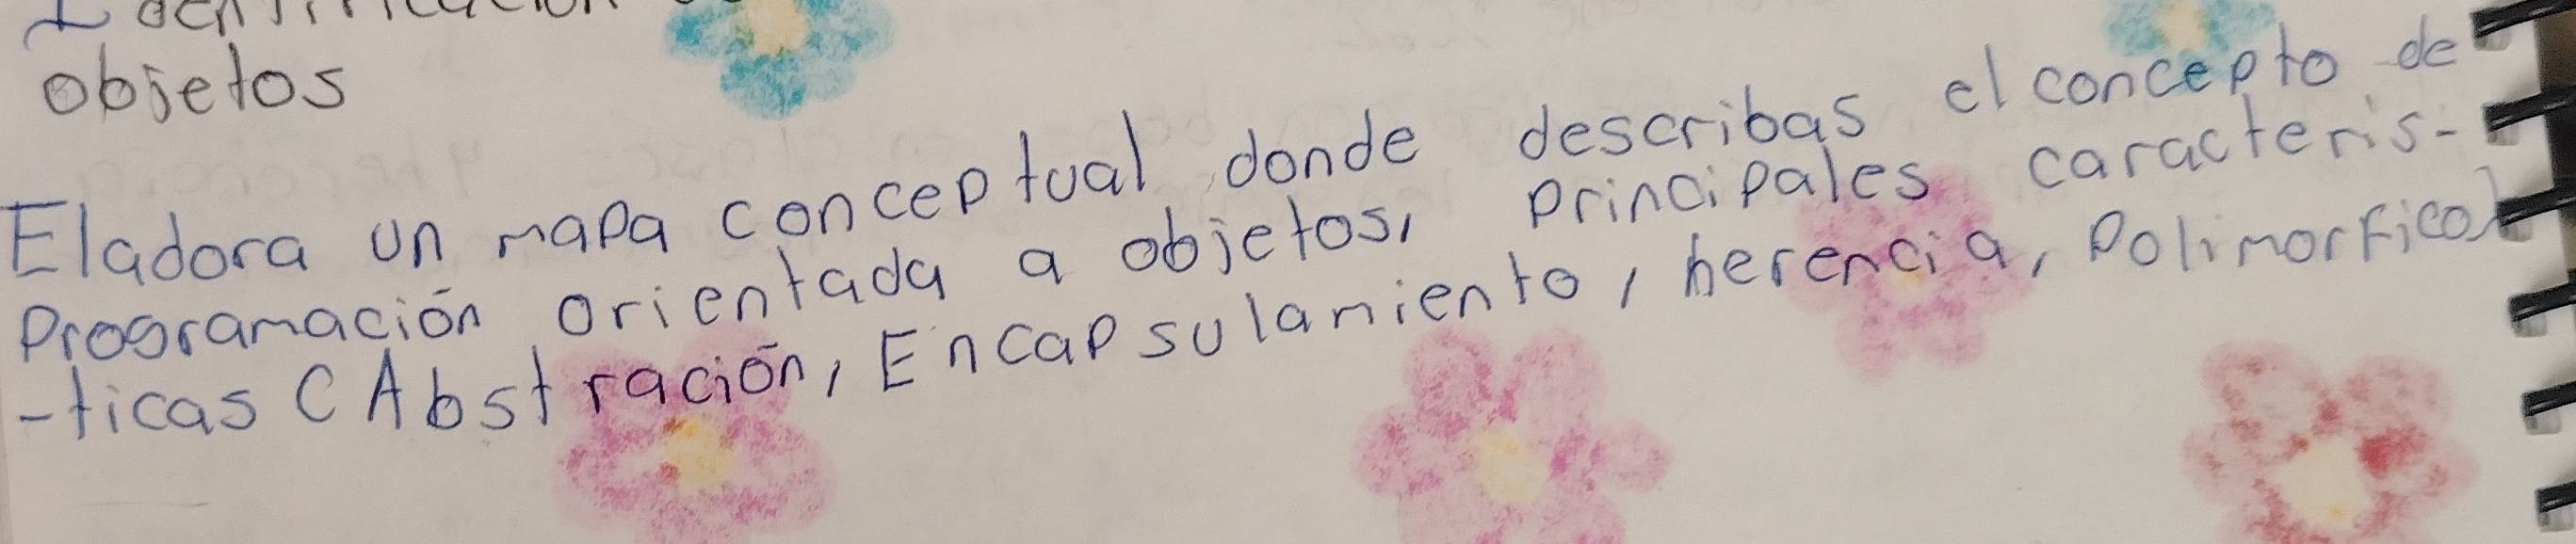 Identificación
objetos
Eladora un mapa conceptual donde describas el concepto de
Programación orientada a objetos, principales caracteris-
-ticas (Abstración, Encapsulamiento, herencia, Polimorfico)